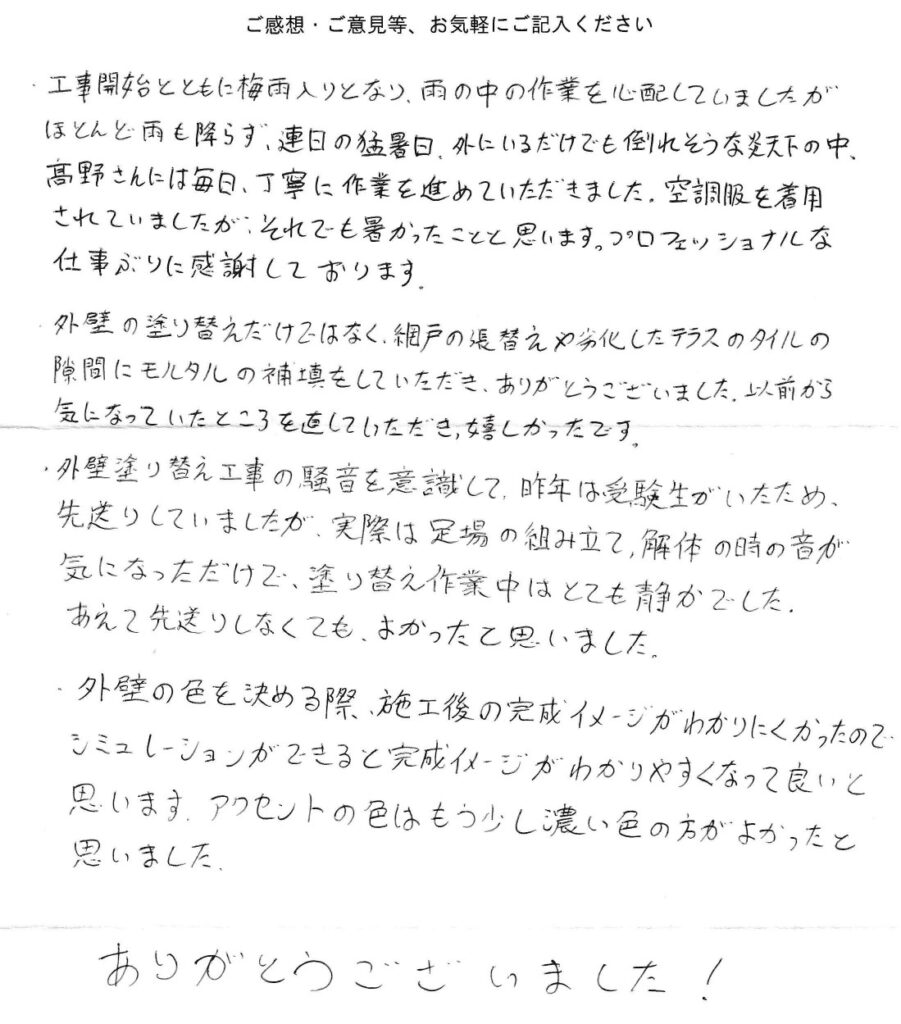 ご感想・ご意見等、お気軽にご記入ください
・工事開始とともに梅雨入りとなり、雨の中の作業を心配していましたが
ほとんど雨も降らず、連日の猛暑日、外にいるだけでも倒れそうな炎天下の中、
髙野さんには毎日、丁寧に作業を進めていただきました。空調服を着用
されていましたが、それでも暑かったことと思います。プロフェッショナルな
仕事ぶりに感謝しております。
・外壁の塗り替えだけではなく、網戸の張替えや劣化したテラスのタイルの
隙間にモルタルの補填をしていただき、ありがとうございました。以前から
気になっていたところを直していただき、嬉しかったです。
・外壁塗り替え工事の騒音を意識して、昨年は受験生がいたため、
先送りしていましたが、実際は足場の組み立て、解体の時の音が
気になっただけで、塗り替え作業中はとても静かでした。
あえて先送りしなくても、よかったと思いました。
・外壁の色を決める際、施工後の完成イメージがわかりにくかったので
シミュレーションができると完成イメージがわかりやすくなって良いと
思います。アクセントの色はもう少し濃い色の方がよかったと
思いました。
ありがとうございました!